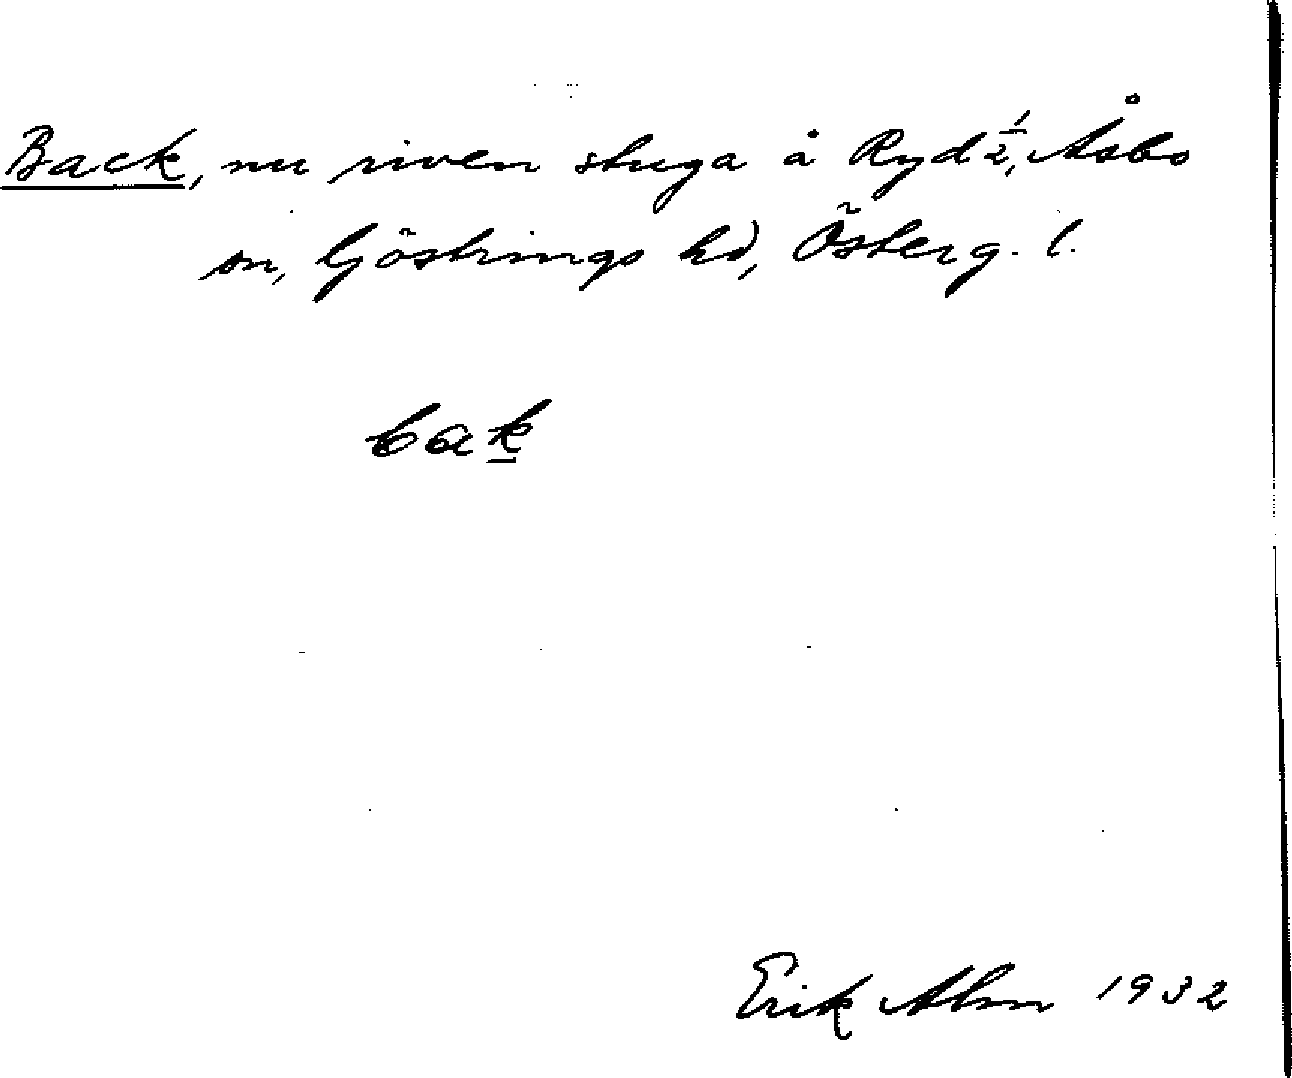 Back, nu riven stuga å Ryd 1/2, Åsbo
sn, Göstrings hd, Österg. l.
bak
Erik Alm 1932